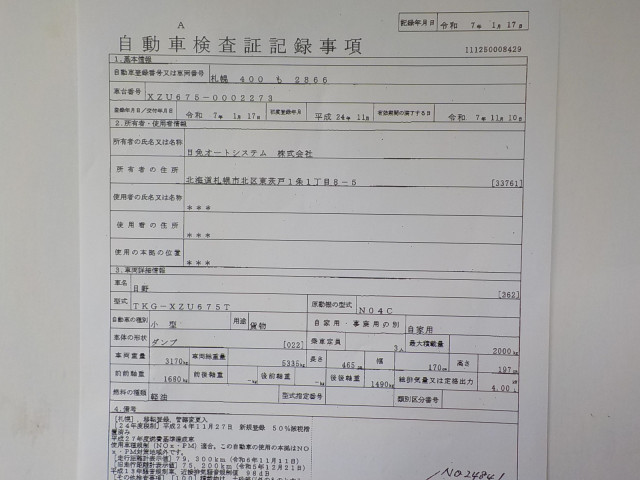 A
記録年月日 令和 7年 1月 17日
自動車検査証記録事項
111250008429
1.基本情報
自動車登録番号又は車両番号 札幌 400 も 2866
車台番号 XZU675-0002273
登録年月日/交付年月日 令和 7年 1月 17日 初度登録年月 平成 24年 11月 有効期間の満了する日 令和 7年 11月 10日
2.所有者・使用者情報
所有者の氏名又は名称 日免オートシステム 株式会社
所有者の住所 北海道札幌市北区東茨戸1条1丁目8-5 [33761]
使用者の氏名又は名称 ***
使用者の住所 ***
使用の本拠の位置 ***
3.車両詳細情報
車名 日野 [362]
型式 TKG-XZU675T 原動機の型式 N04C
自動車の種別 小型 用途 貨物 自家用・事業用の別 自家用
車体の形状 ダンプ [022] 乗車定員 3人 最大積載量 2000kg
車両重量 3170kg 車両総重量 5335kg 長さ 465cm 幅 170cm 高さ 197cm
前前軸重 1680kg 前後軸重 -kg 後前軸重 -kg 後後軸重 1490kg 総排気量又は定格出力 4.00L
燃料の種類 軽油 型式指定番号 類別区分番号
4.備考
[札幌],移転登録,管轄変更入
[24年度税制]平成24年11月27日 新規登録 50%該税階
置済み
平成27年度燃費基準達成車
使用車種規制(NOx・PM)適合,この自動車の使用の本拠はNO
x・PM対策地域外です。
[走行距離計表示値] 79,300km(令和6年11月11日)
[旧走行距離計表示値] 75,200km(令和5年12月21日)
平成13年騒音規制車,近接排気騒音規制値 98dB
NO24841